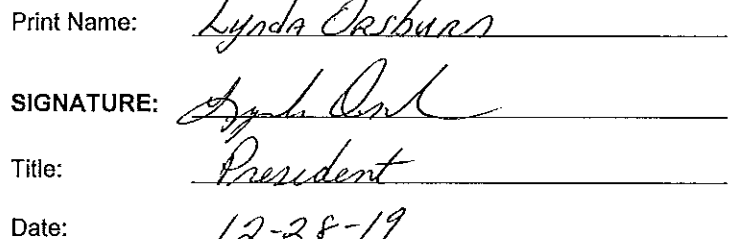 Print Name: Lynda Orsburn
SIGNATURE:
Title: President
Date: 12-28-19